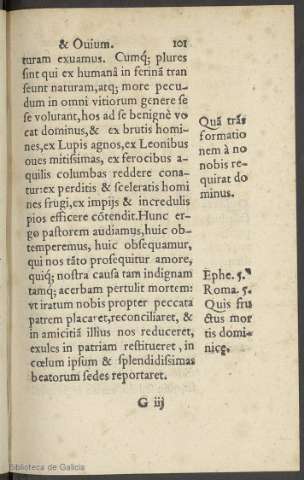 & Ouium. 101
turam exuamus. Cumq; plures
sint qui ex humanâ in ferinâ tran
seunt naturam, atq; more pecu-
dum in omni vitiorum genere se
se volutant, hos ad se benignè vo
cat dominus, & ex brutis homi-
nes, ex Lupis agnos, ex Leonibus
oues mitissimas, ex ferocibus a-
quilis columbas reddere cona-
tur: ex perditis & sceleratis homi
nes frugi, ex impijs & incredulis
pios efficere cõtendit. Hunc er-
go pastorem audiamus, huic ob-
temperemus, huic obsequamur,
qui nos tãto prosequitur amore,
quiq; nostra causa tam indignam
tamq; acerbam pertulit mortem:
vt iratum nobis propter peccata
patrem placaret, reconciliaret, &
in amicitiã illius nos reduceret,
exules in patriam restitueret, in
cœlum ipsum & splendidissimas
beatorum sedes reportaret.
G iij
Quã trãs
formatio
nem à no
nobis re-
quirat do
minus.
Ephe. 5.
Roma. 5.
Quis fru
ctus mor
tis domi-
nicę.
Biblioteca de Galicia